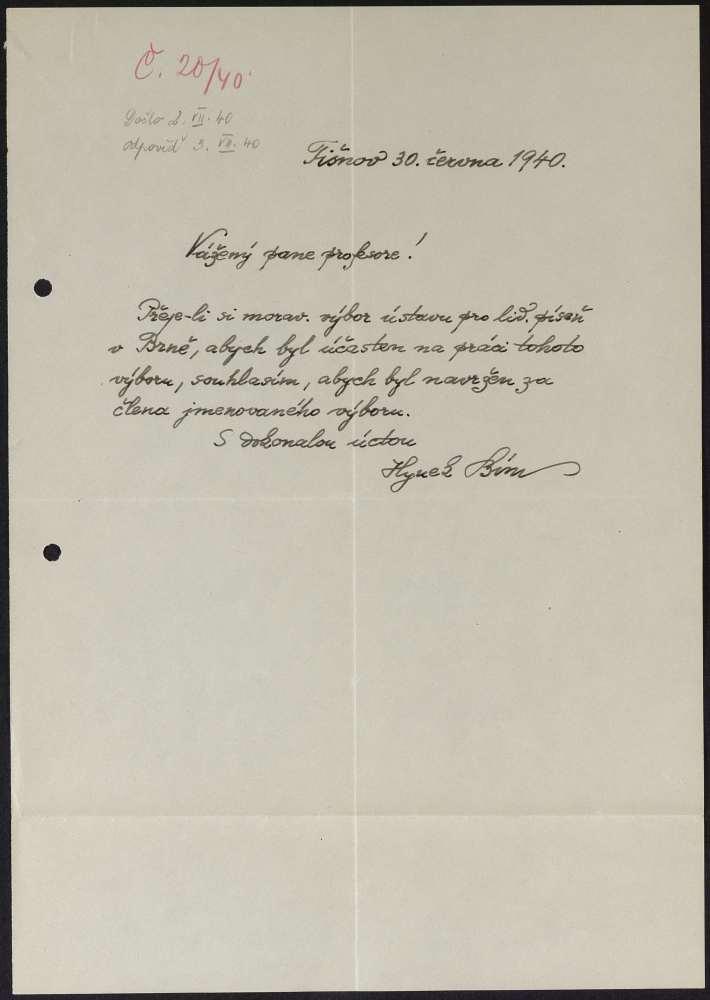 Č. 20/40
Došlo 2. VII. 40
odpověď 3. VII. 40
Tišnov 30. června 1940.
Vážený pane profesore!
Přeje-li si morav. výbor ústavu pro lid. píseň
v Brně, abych byl účasten na práci tohoto
výboru, souhlasím, abych byl navržen za
člena jmenovaného výboru.
S dokonalou úctou
Hynek Bím